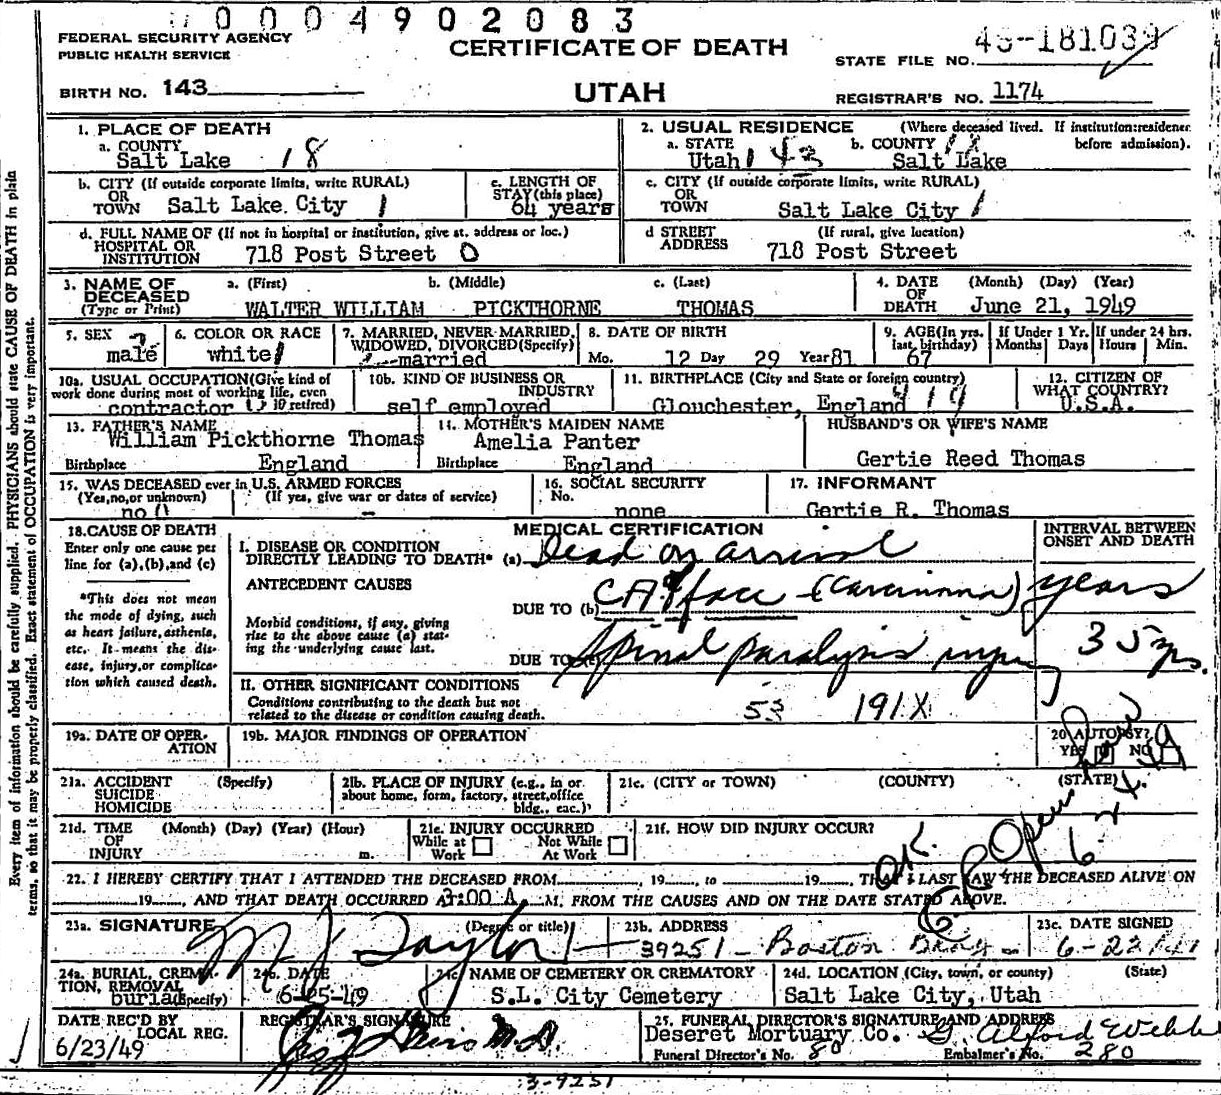 0004902083
FEDERAL SECURITY AGENCY
PUBLIC HEALTH SERVICE
CERTIFICATE OF DEATH
STATE FILE NO. 49-181039
BIRTH NO. 143
UTAH
REGISTRAR'S NO. 1174
1. PLACE OF DEATH
a. COUNTY
Salt Lake 18
2. USUAL RESIDENCE (Where deceased lived. If institution:residence before admission).
a. STATE b. COUNTY
Utah 143 18 Salt Lake
b. CITY (If outside corporate limits, write RURAL)
OR
TOWN Salt Lake City 1
c. LENGTH OF
STAY (this place)
64 years
c. CITY (If outside corporate limits, write RURAL)
OR
TOWN Salt Lake City 1
d. FULL NAME OF (If not in hospital or institution, give st. address or loc.)
HOSPITAL OR
INSTITUTION 718 Post Street 0
d STREET (If rural, give location)
ADDRESS 718 Post Street
3. NAME OF
DECEASED
(Type or Print)
a. (First) b. (Middle) c. (Last)
WALTER WILLIAM PICKTHORNE THOMAS
4. DATE (Month) (Day) (Year)
OF
DEATH June 21, 1949
5. SEX
male
6. COLOR OR RACE
white 1
7. MARRIED, NEVER MARRIED,
WIDOWED, DIVORCED (Specify)
married
8. DATE OF BIRTH
Mo. 12 Day 29 Year 81
9. AGE (In yrs.
last birthday)
67
If Under 1 Yr.
Months Days
If under 24 hrs.
Hours Min.
10a. USUAL OCCUPATION (Give kind of
work done during most of working life, even
if retired)
contractor
10b. KIND OF BUSINESS OR
INDUSTRY
self employed
11. BIRTHPLACE (City and State or foreign country)
Glouchester, England
12. CITIZEN OF
WHAT COUNTRY?
U.S.A.
13. FATHER'S NAME
William Pickthorne Thomas
Birthplace England
14. MOTHER'S MAIDEN NAME
Amelia Panter
Birthplace England
HUSBAND'S OR WIFE'S NAME
Gertie Reed Thomas
15. WAS DECEASED ever in U.S. ARMED FORCES
(Yes,no,or unknown) (If yes, give war or dates of service)
no 0 -
16. SOCIAL SECURITY
No.
none
17. INFORMANT
Gertie R. Thomas
18. CAUSE OF DEATH
Enter only one cause per
line for (a),(b),and (c)
*This does not mean
the mode of dying, such
as heart failure, asthenia,
etc. It means the dis-
ease, injury, or complica-
tion which caused death.
MEDICAL CERTIFICATION
INTERVAL BETWEEN
ONSET AND DEATH
I. DISEASE OR CONDITION
DIRECTLY LEADING TO DEATH* (a) Dead on arrival
ANTECEDENT CAUSES
DUE TO (b) CA of face (carcinoma) years
Morbid conditions, if any, giving
rise to the above cause (a) stat-
ing the underlying cause last.
DUE TO (c) Spinal paralysis injury 35 yrs.
II. OTHER SIGNIFICANT CONDITIONS
Conditions contributing to the death but not
related to the disease or condition causing death.
53 191X
19a. DATE OF OPER-
ATION
19b. MAJOR FINDINGS OF OPERATION
20 AUTOPSY?
YES NO
21a. ACCIDENT (Specify)
SUICIDE
HOMICIDE
21b. PLACE OF INJURY (e.g., in or
about home, form, factory, street, office
bldg., eac.)
21c. (CITY or TOWN) (COUNTY) (STATE)
21d. TIME (Month) (Day) (Year) (Hour)
OF
INJURY m.
21e. INJURY OCCURRED
While at Work Not While At Work
21f. HOW DID INJURY OCCUR?
OK.
22. I HEREBY CERTIFY THAT I ATTENDED THE DECEASED FROM , 19 , to 19 , THAT I LAST SAW THE DECEASED ALIVE ON
19 , AND THAT DEATH OCCURRED AT 3:00 A M. FROM THE CAUSES AND ON THE DATE STATED ABOVE.
23a. SIGNATURE (Degree or title)
M J Taylor
23b. ADDRESS
39251 - Boston Bldg
23c. DATE SIGNED
24a. BURIAL, CREMA-
TION, REMOVAL
(Specify)
burial
24b. DATE
6-25-49
24c NAME OF CEMETERY OR CREMATORY
S.L. City Cemetery
24d. LOCATION (City, town, or county) (State)
Salt Lake City, Utah
DATE REC'D BY
LOCAL REG.
6/23/49
REGISTRAR'S SIGNATURE
M.D.
25. FUNERAL DIRECTOR'S SIGNATURE AND ADDRESS
Deseret Mortuary Co. G. Alford Webb
Funeral Director's No. 80 Embalmer's No. 280
3-9251
Every item of information should be carefully supplied. PHYSICIANS should state CAUSE OF DEATH in plain
terms, so that it may be properly classified. Exact statement of OCCUPATION is very important.